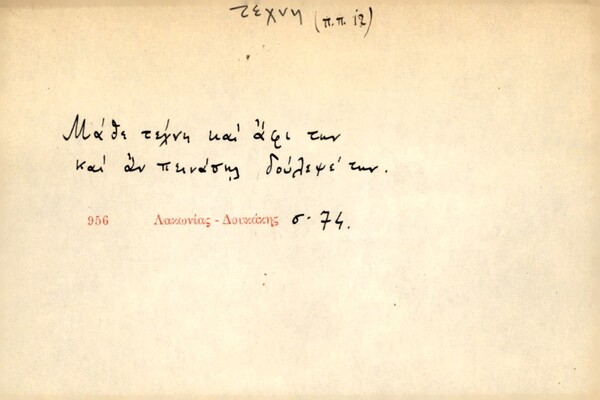 τέχνη (π.π. 12)
Μάθε τέχνη καί ἄφι την
καί ἄν πεινάσῃς δούλεψέ την.
956 Λακωνίας - Δουκάκης σ. 74.